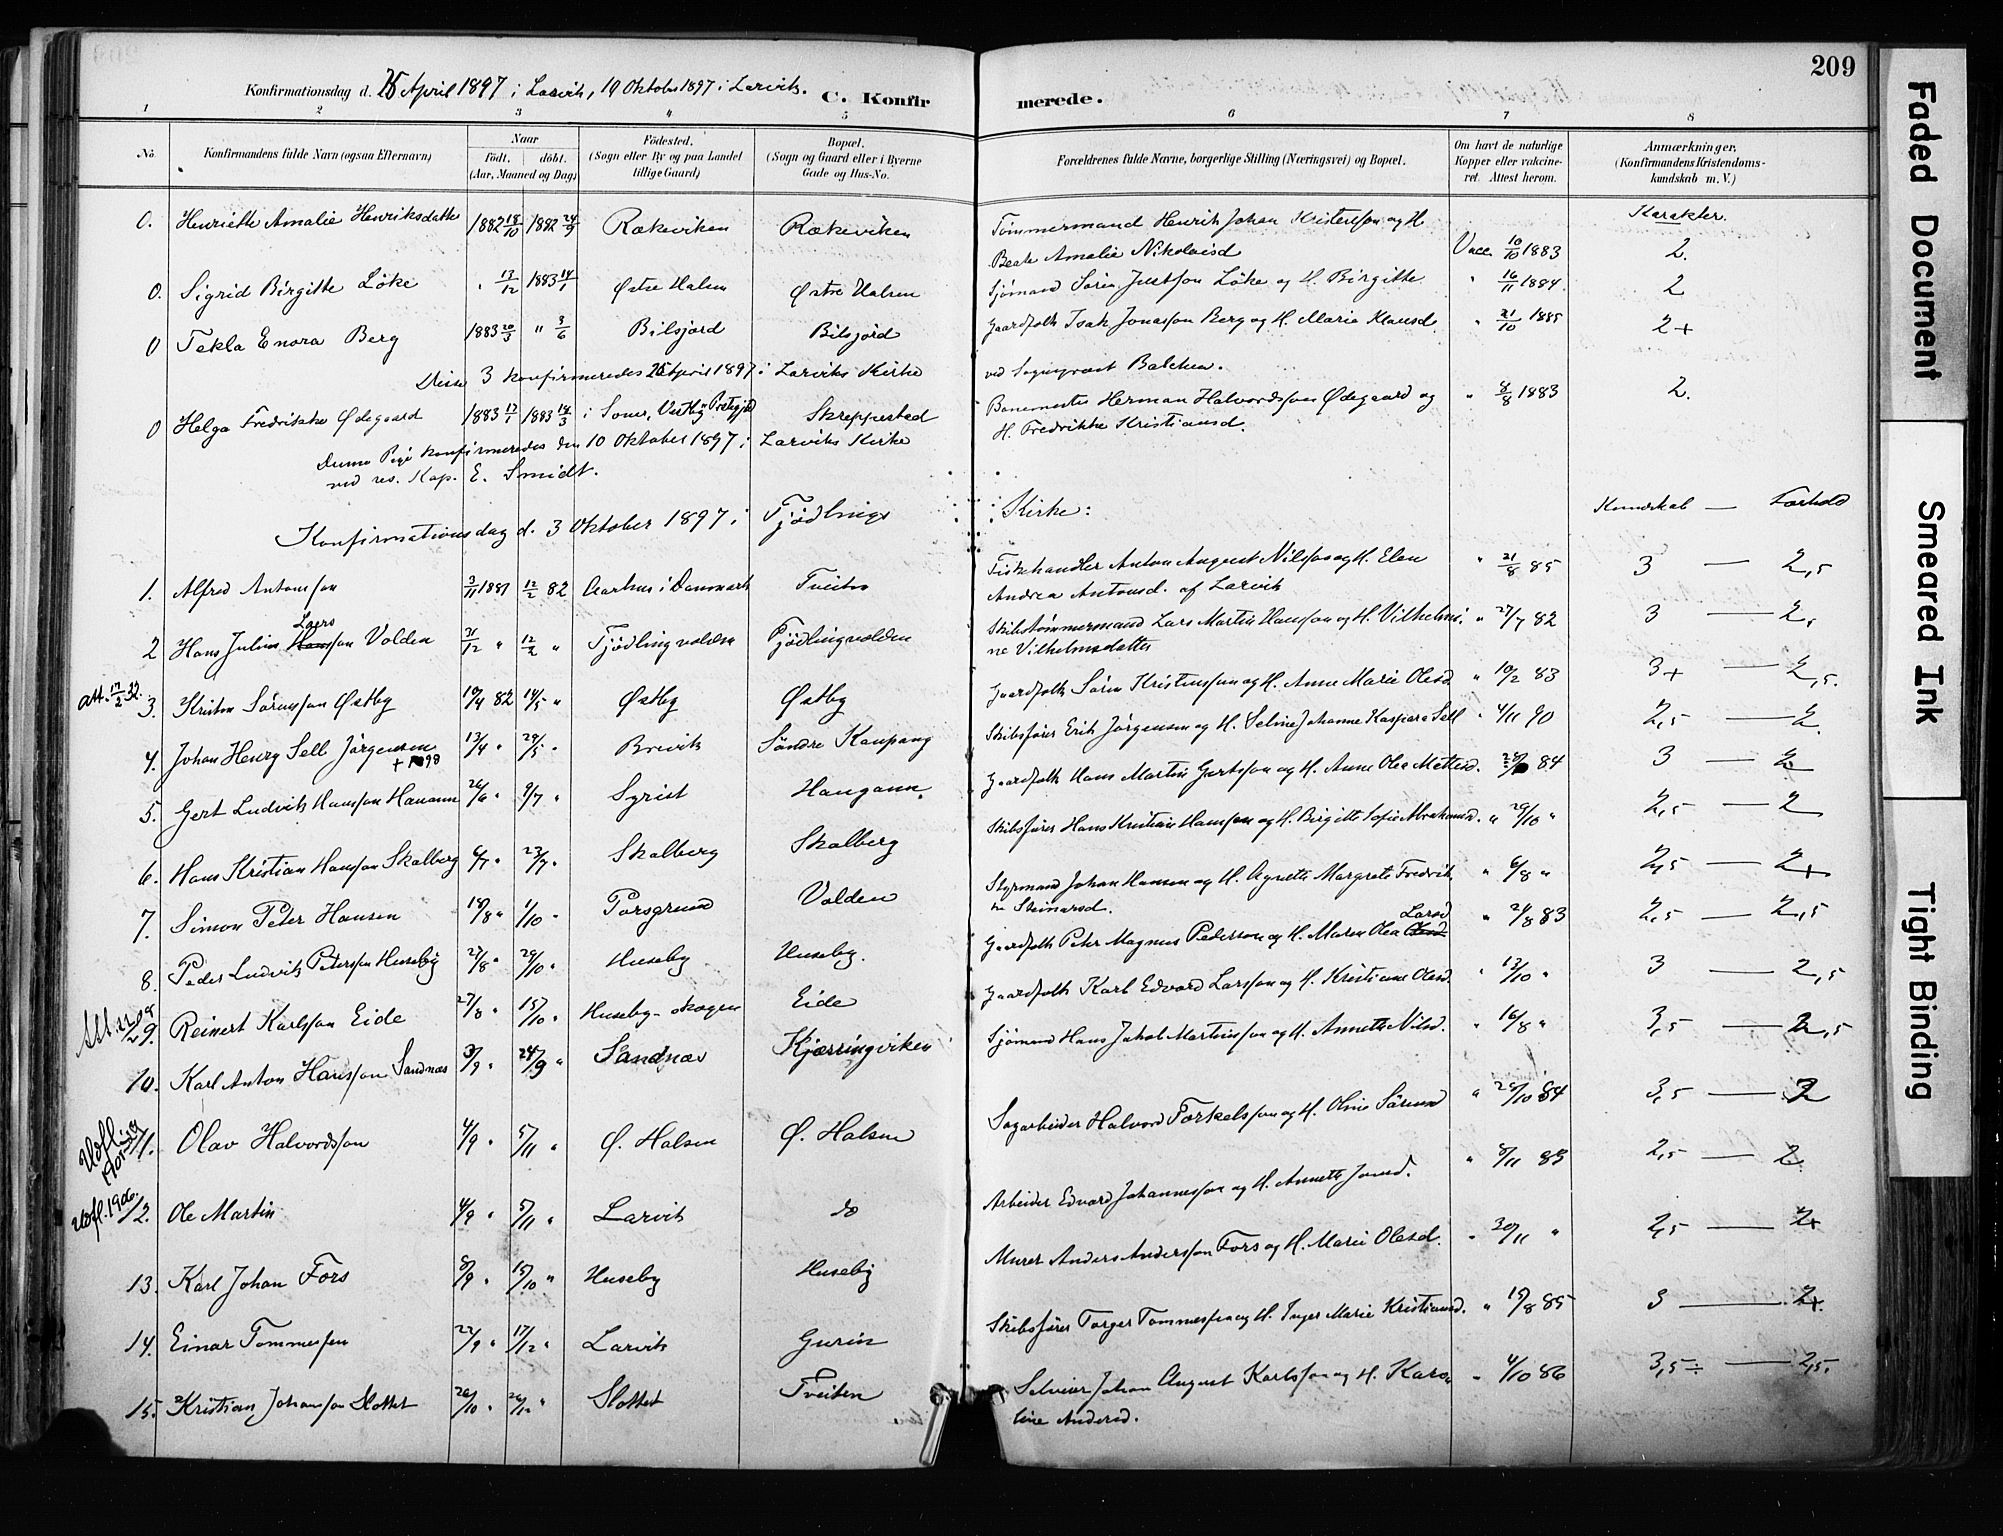 209
Konfirmationsdag d. 25 April 1897 i Larvik, 10 Oktober 1897 i Larvik. C. Konfirmerede.
1 2 3 4 5 6 7 8
No. Konfirmandens fulde Navn (ogsaa Efternavn) Naar født. døbt. (Aar, Maaned og Dag) Fødested. (Sogn eller By og paa Landet tillige Gaard) Bopæl. (Sogn og Gaard eller i Byerne Gade og Hus-No. Forældrenes fulde Navne, borgerlige Stilling (Næringsvei) og Bopæl. Om havt de naturlige Kopper eller vakcineret. Attest herom. Anmærkninger. (Konfirmandens Kristendomskundskab m. V.)
Karakter.
0. Henriette Amalie Henriksdatter 1882 18/10 1882 24/9 Rækeviken Rækeviken Tømmermand Henrik Johan Kristensson og H. Beate Amalie Nikolaisd Vacc. 10/10 1883 2.
0. Sigrid Birgitte Løke " 13/12 1883 14/1 Østre Halsen Østre Halsen Sjømand Søren Justsson Løke og H. Birgitte " 16/11 1884. 2
0 Tekla Enora Berg 1883 20/3 " 3/6 Bilsjord Bilsjord Gaardfolk Isak Jonasson Berg og H. Maria Klausd. " 21/10 1885 2+
Disse 3 konfirmeredes 25 April 1897 i Larviks Kirke ved Sogneprest Balchen.
0 Helga Fredrikke Ødegaard 1883 17/1 1883 18/3 i Soner, Vestby Prestegjeld Skreppestad Banemester Herman Halvordsson Ødegaard og H. Fredrikke Kristiansd. " 8/8 1883 2.
Denne Pige konfirmeredes den 10 Oktober 1897 i Larviks Kirke
ved res. Kap. E. Smidt.
Konfirmationsdag d. 3 Oktober 1897 i Tjødlings Kirke: Kundskab — Forhold
1. Alfred Antonsson 3/11 1881 12/2 82 Aarhus i Danmark Tveiten Fiskehandler Anton August Nilsson og H. Elen Andrea Antonsd. af Larvik " 21/8 85 3 — 2,5
2 Hans Julius Larsson Volden 31/12 " 12/2 " Tjødlingvolden Tjødlingvolden Skibstømmermand Lars Martin Hansson og H. Vilhelmine Vilhelmsdatter " 27/7 82 3 — 2,
att. 17/2 32.
3. Kristen Sørensson Østby 10/4 82 14/5 " Østby Østby Gaardfolk Søren Kristensson og H. Anne Marie Olesd. " 10/2 83 3+ — 2,5.
4. Johan Henry Sell Jørgensen 13/4 " 29/5 " Brevik Søndre Kaupang Skibsfører Erik Jørgensen og H. Seline Johanne Kaspara Sell " 4/11 90 2,5 — 2
5. Gert Ludvik Hansson Hauann 26/6 " 9/7 " Syrist Haugann. Gaardfolk Hans Martin Gertsson og H. Anne Olea Mettesd. 84 3 — 2
6. Hans Kristian Hansson Skalberg 6/7 " 23/7 " Skalberg Skalberg Skibsfører Hans Kristian Hansson og H. Birgitte Sofie Abrahamsd. " 29/10 " 2,5 — 2
7. Simon Peter Hansen 18/8 " 1/10 " Porsgrund Volden Styrmand Johan Hansen og H. Agnette Margrete Fredrikke Steinarsd. " 6/8 " 2,5 — 2+
8. Peder Ludvik Petersson Huseby 27/8 " 29/10 " Huseby Huseby. Gaardfolk Peter Magnus Pedersson og H. Maren Olea Larsd " 24/8 83 2,5 — 2,5
9. Reinert Karlsson Eide 27/8 " 15/10 " Huseby-skogen Eide Gaardfolk Karl Edvard Larsson og H. Kristiane Olesd. " 13/10 " 3 — 2,5
10. Karl Anton Hansson Sandnæs 3/9 " 24/9 " Sandnæs Kjærringviken Sjømand Hans Jakob Martinsson og H. Annette Nilsd. " 16/8 " 3,5 — 2,5
11. Olav Halvordsson 4/9 " 5/11 " Ø. Halsen Ø. Halsen Sagarbeider Halvord Torkelsson og H. Oline Sørensd " 28/10 84 3,5 — 2
12. Ole Martin 4/9 " 5/11 " Larvik do Arbeider Edvard Johannesson og H. Annette Jonsd. " 8/11 83 2,5 — 2
13. Karl Johan Fors 8/9 " 15/10 " Huseby Huseby Murer Anders Andersson Fors og H. Marie Olesd. " 30/11 " 2,5 — 2+
14. Einar Tommesen 22/9 " 17/12 " Larvik Gurin Skibsfører Torger Tommesen og H. Inger Marie Kristiansd. " 15/8 85 3 — 2+
15. Kristian Johansson Slottet 26/10 " 26/12 " Slottet Tveiten Selveier Johan August Karlsson og H. Karoline Andersd. " 4/10 86 3,5÷ — 2,5.
Faded Document
Smeared Ink
Tight Binding